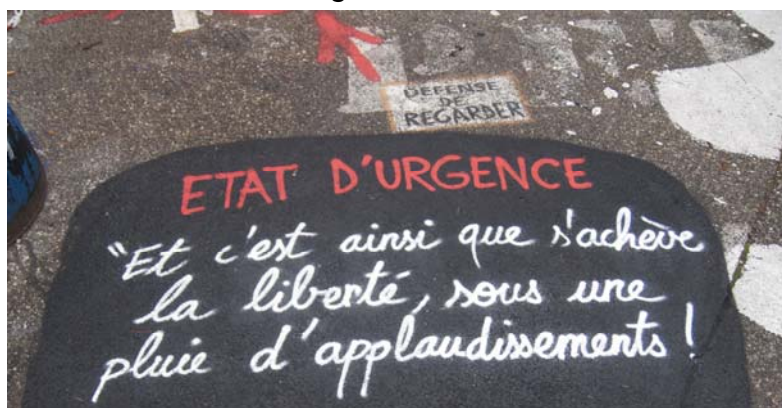 DEFENSE
DE
REGARDER
ETAT D'URGENCE
"Et c'est ainsi que s'achève
la liberté, sous une
pluie d'applaudissements !